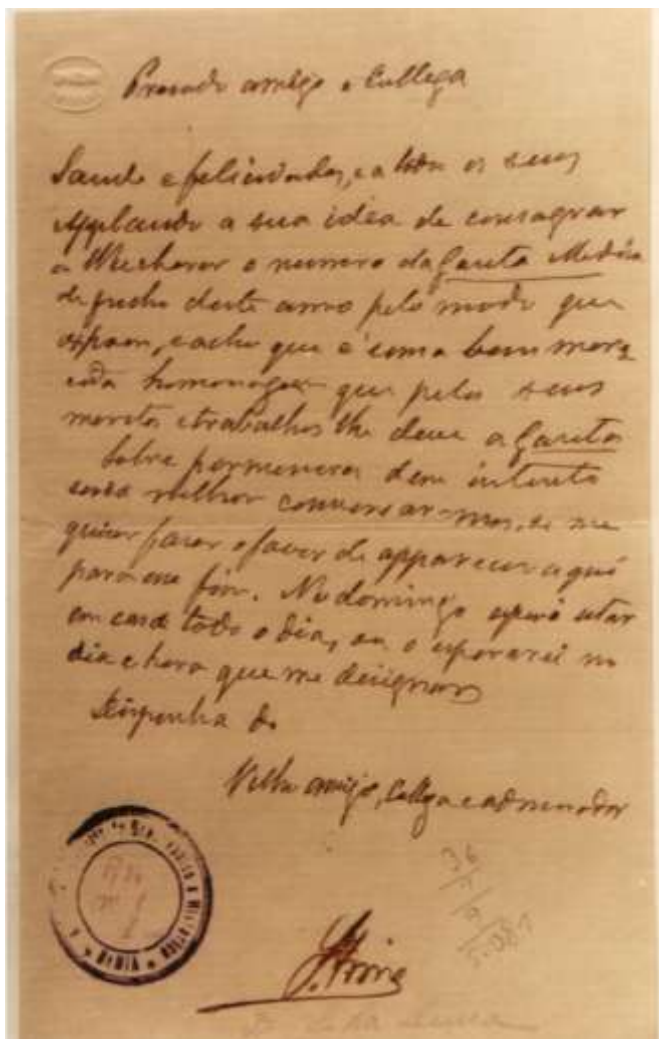 Presado amigo e Collega
Saude e felicidades, e a todos os seus
Applaudo a sua idea de consagrar
a Wucherer o numero da Gazeta Medica
de Junho deste anno pelo modo que
expoem, e acho que é uma bem mere-
cida homenagem que pelos seus
meritos e trabalhos lhe deve a Gazeta.
Sobre pormenores
será melhor conversar-mos, se me
quizer fazer o favor de apparecer aqui
para esse fim. No domingo espero estar
em casa todo o dia, ou o esperarei no
dia e hora que me designar.
Disponha do
Velho amigo, Collega e admirador
BAHIA
36